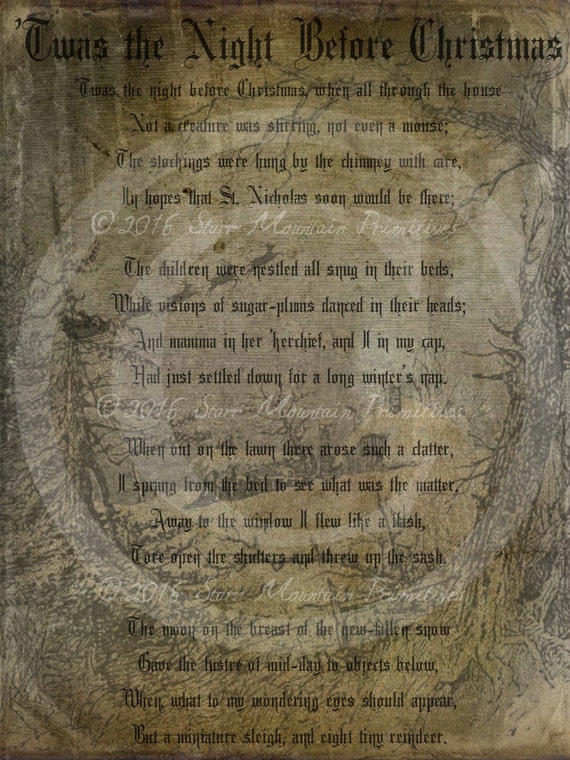 'Twas the Night Before Christmas
'Twas the night before Christmas, when all through the house—
Not a creature was stirring, not even a mouse;
The stockings were hung by the chimney with care,
In hopes that St. Nicholas soon would be there;
© 2016 Starr Mountain Primitives
The children were nestled all snug in their beds,
While visions of sugar-plums danced in their heads;
And mamma in her 'kerchief, and I in my cap,
Had just settled down for a long winter's nap.
© 2016 Starr Mountain Primitives
When out on the lawn there arose such a clatter,
I sprang from the bed to see what was the matter.
Away to the window I flew like a flash,
Tore open the shutters and threw up the sash.
© 2016 Starr Mountain Primitives
The moon on the breast of the new-fallen snow
Gave the lustre of mid-day to objects below,
When, what to my wondering eyes should appear,
But a miniature sleigh, and eight tiny reindeer.